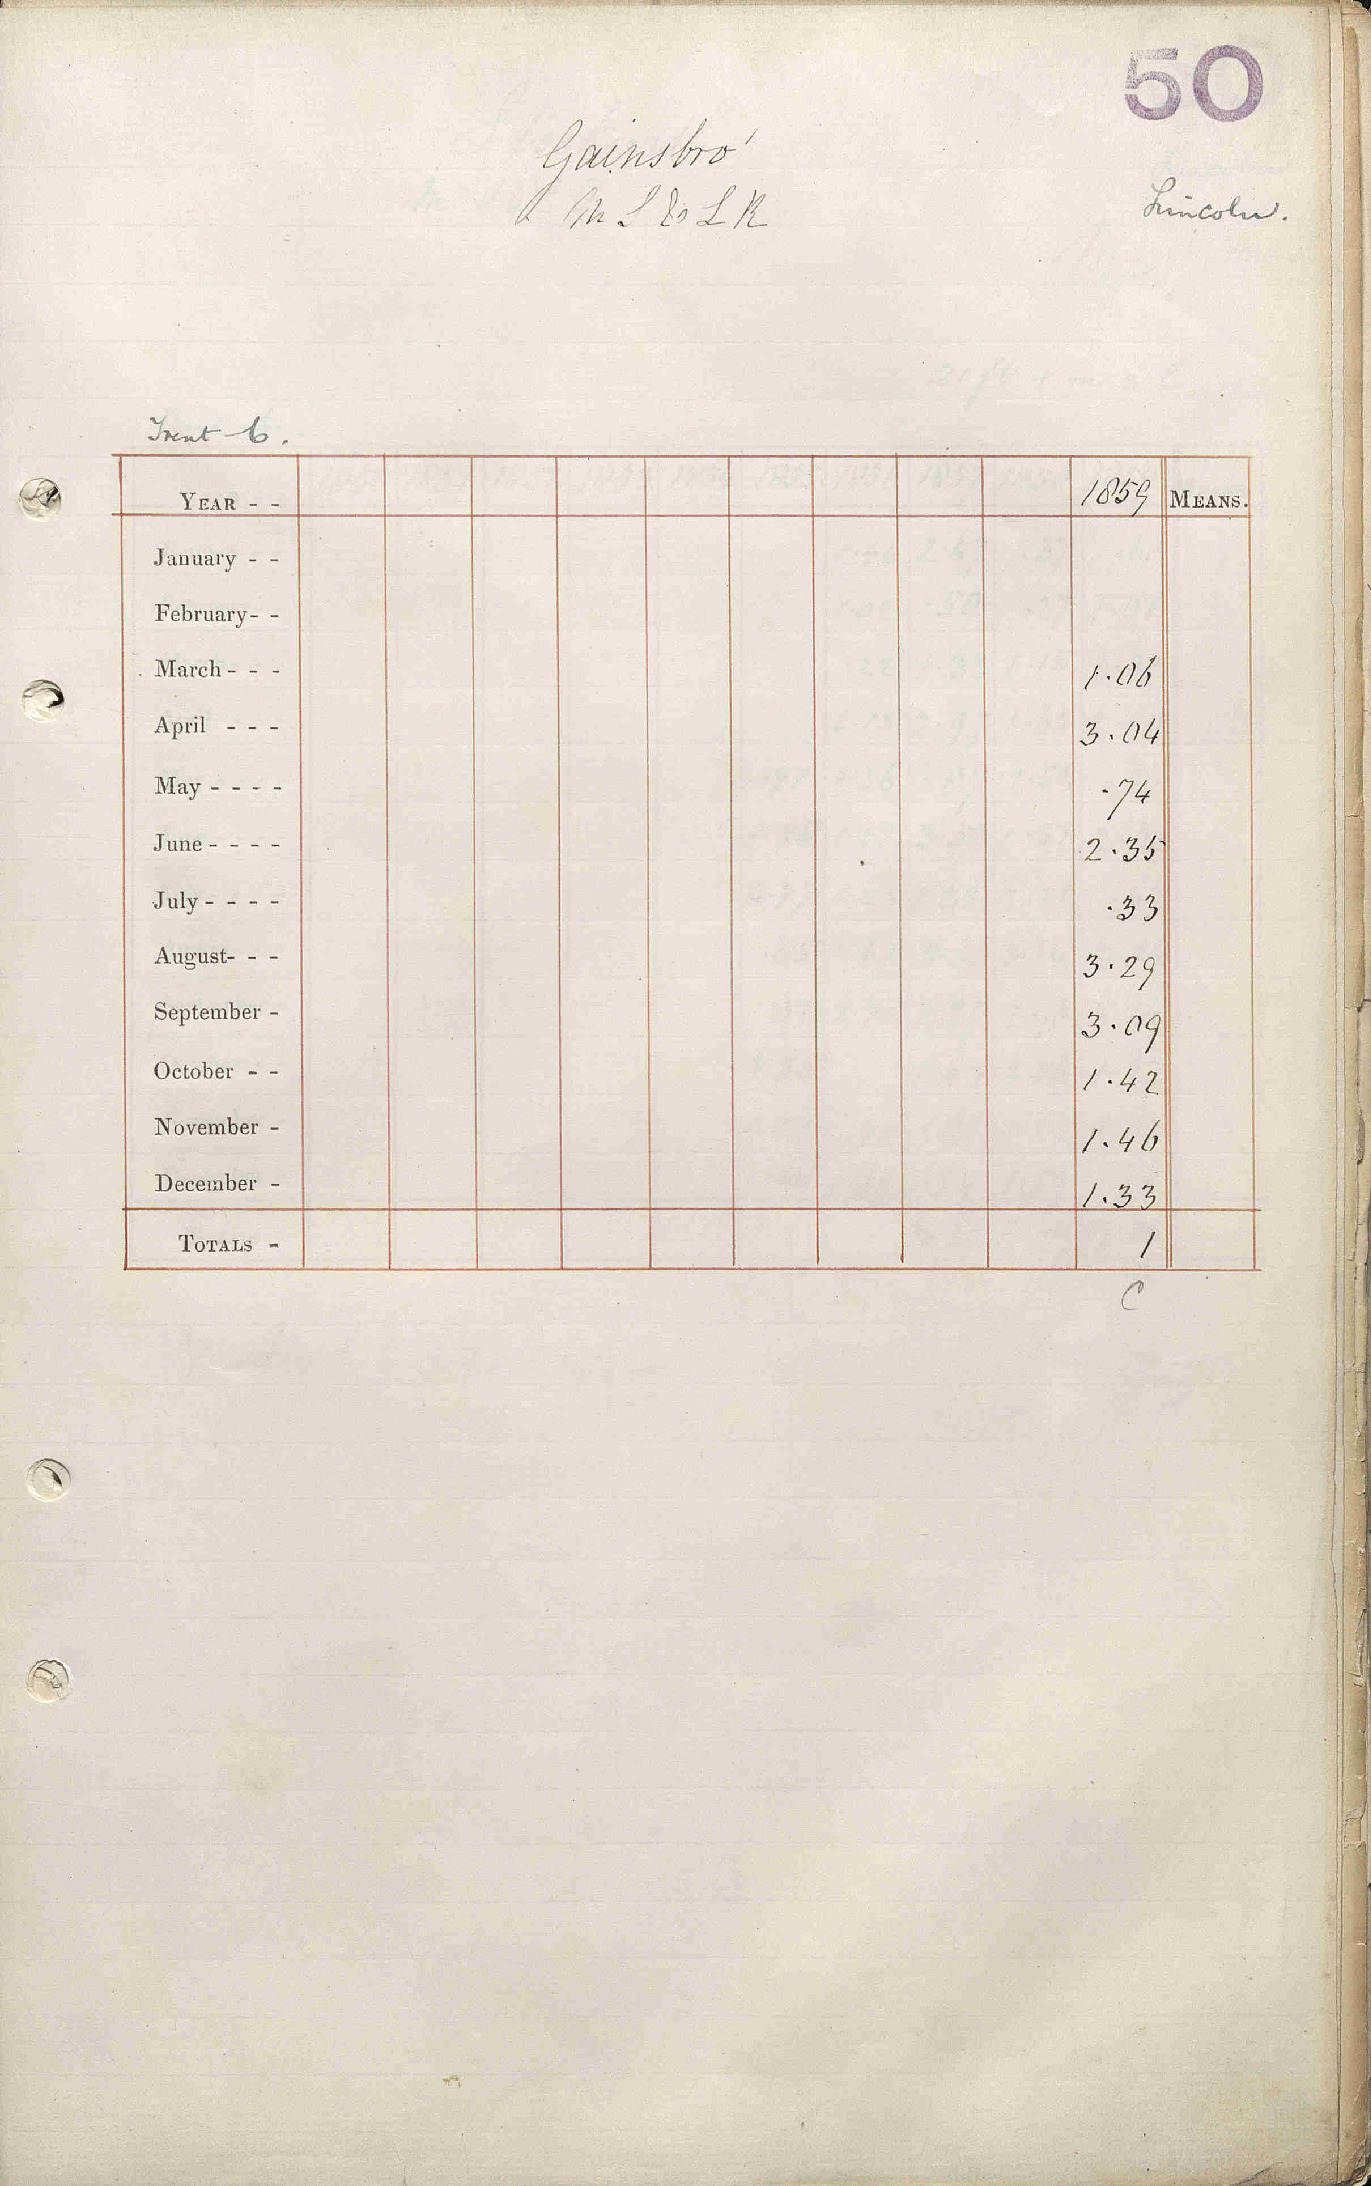 50
Gainsbro'
M S & L R
Lincoln.
Trent
YEAR - - 1859 MEANS.
January - -
February- -
March - - - 1.06
April - - - 3.04
May - - - - .74
June - - - - 2.35
July - - - - .33
August- - - 3.29
September - 3.09
October - - 1.42
November - 1.46
December - 1.33
TOTALS - /
C